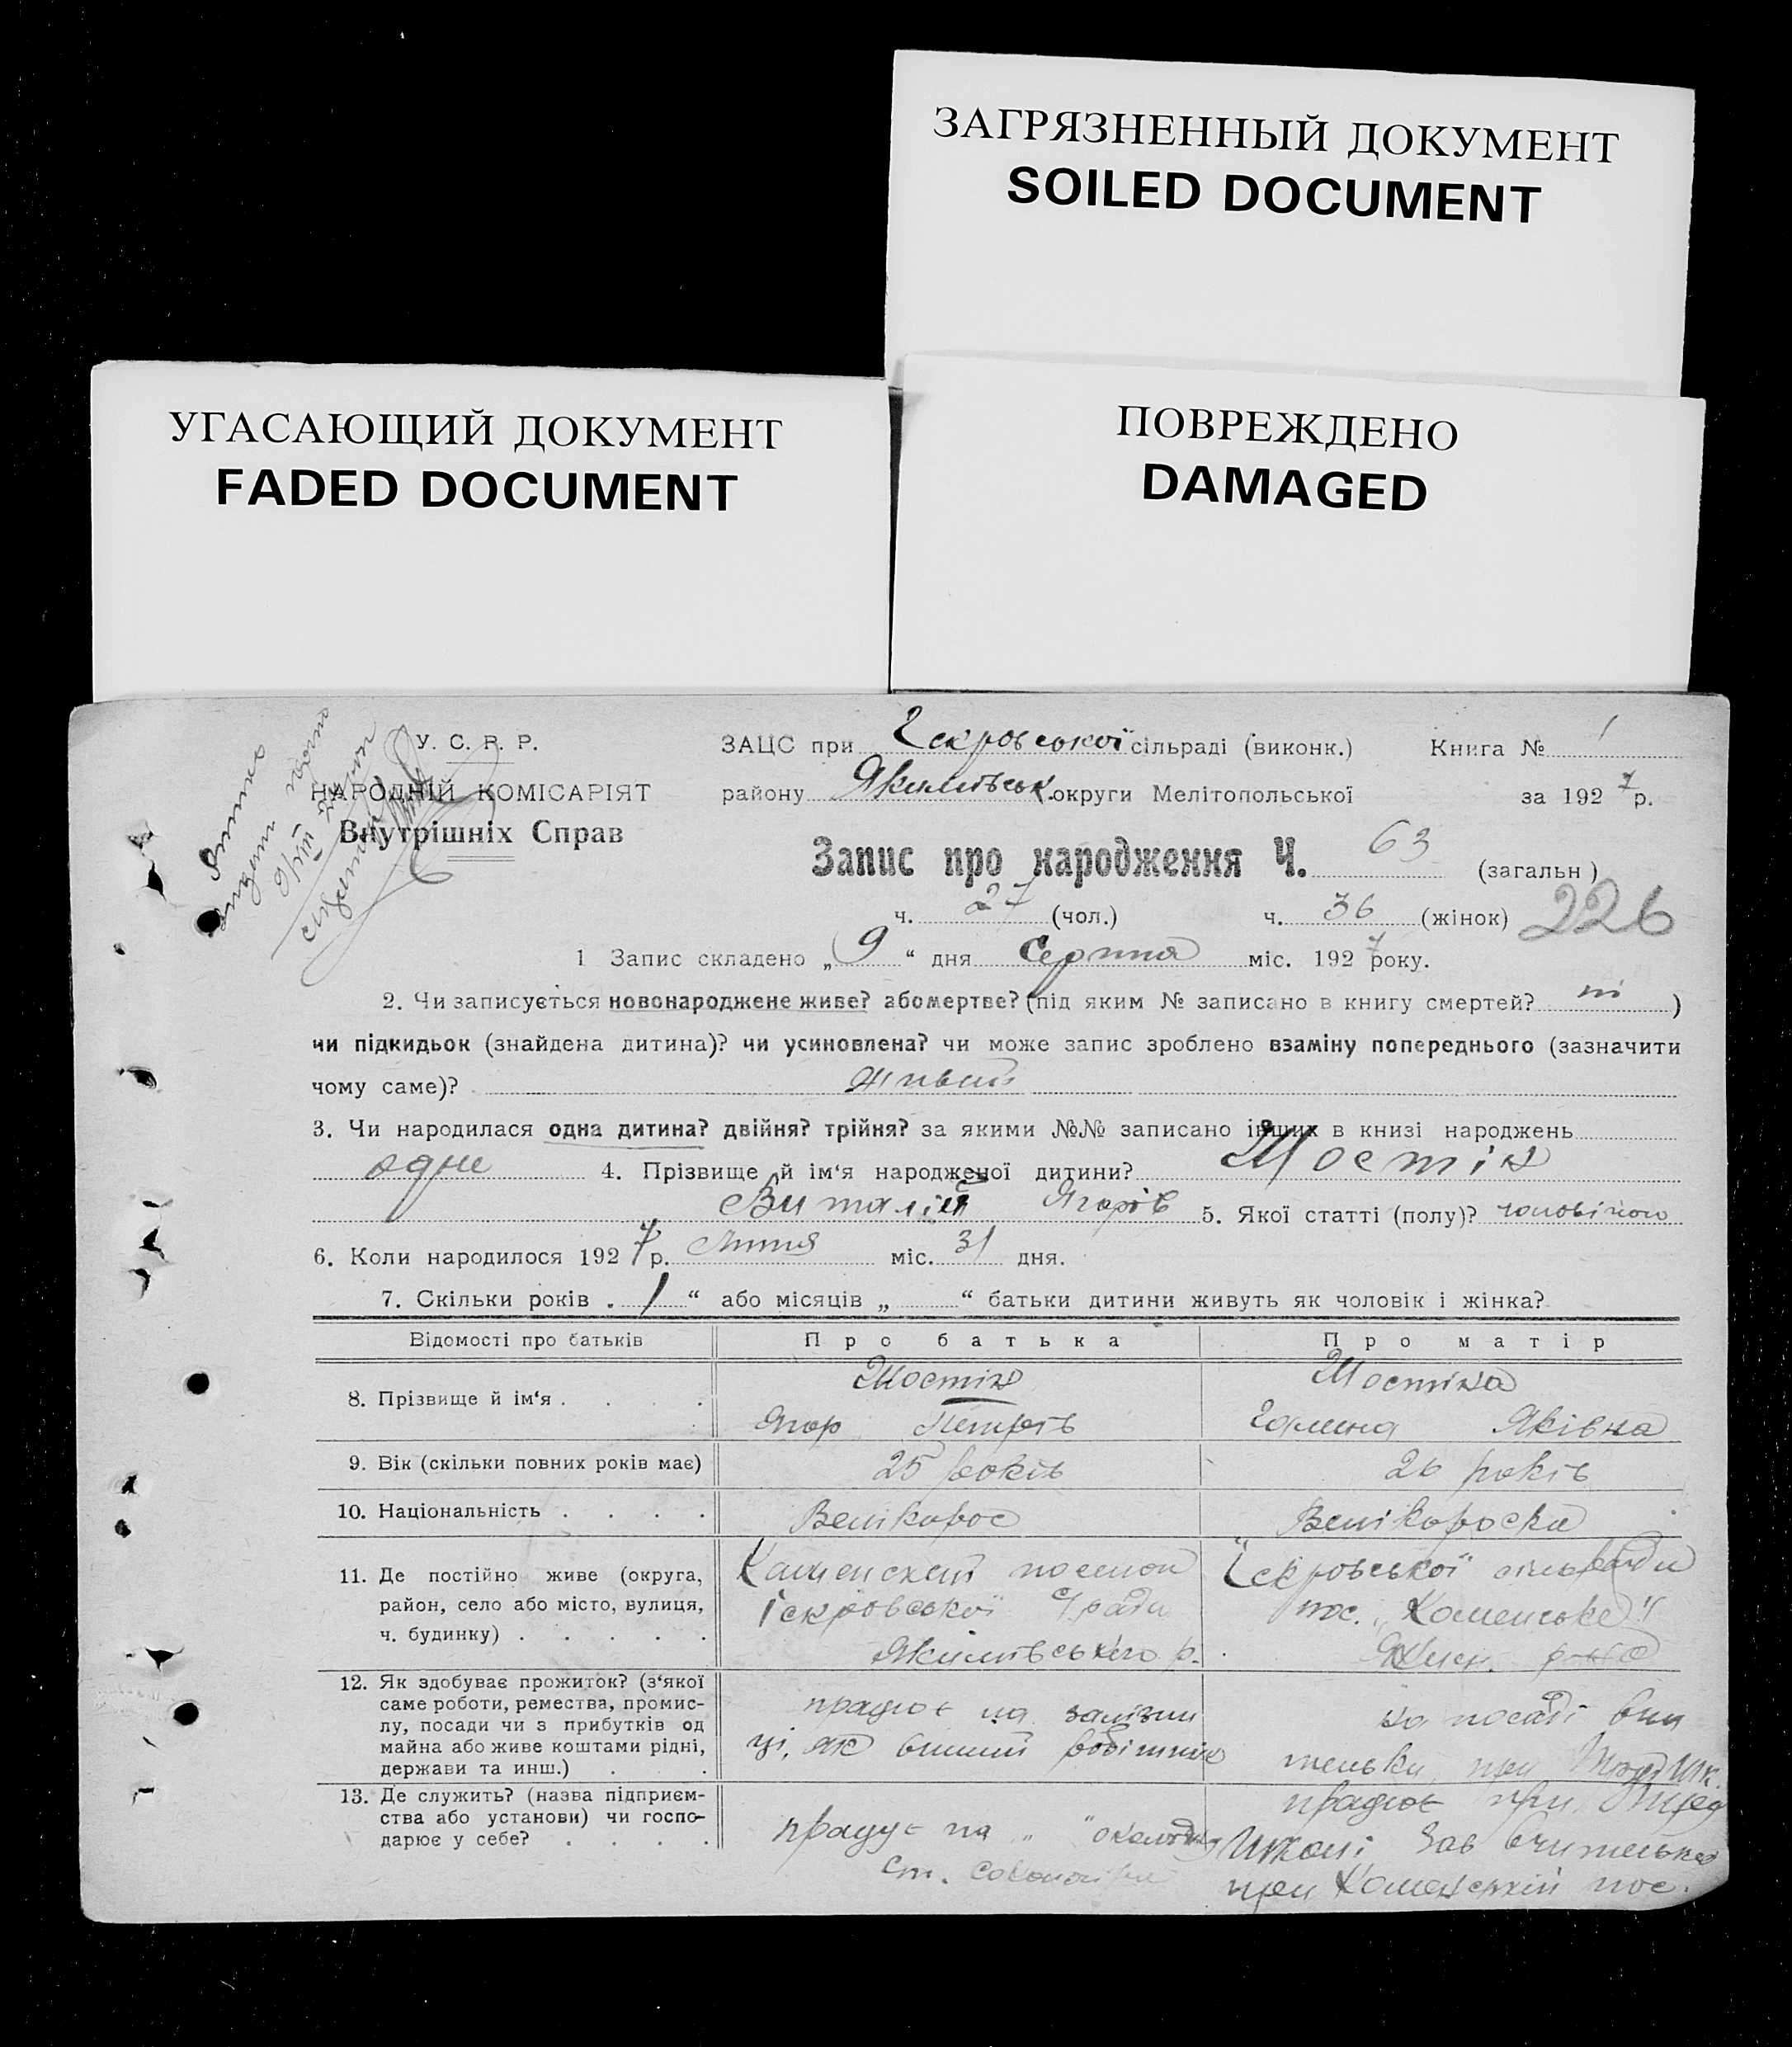 ЗАГРЯЗНЕННЫЙ ДОКУМЕНТ
SOILED DOCUMENT
УГАСАЮЩИЙ ДОКУМЕНТ
FADED DOCUMENT
ПОВРЕЖДЕНО
DAMAGED
У. С. Р. Р.
НАРОДНІЙ КОМІСАРІЯТ
Внутрішніх Справ
ЗАЦС при Іскровської сільраді (виконк.) Книга № 1
району Якимівськ. округи Мелітопольської за 1927 р.
Запис про народження Ч. 63 (загальн)
ч. 27 (чол.) ч. 36 (жінок) 226
1 Запис складено „9“ дня Серпня міс. 1927 року.
2. Чи записується новонароджене живе? або мертве? (під яким № записано в книгу смертей? ні )
чи підкидьок (знайдена дитина)? чи усиновлена? чи може запис зроблено взаміну попереднього (зазначити
чому саме)? живий
3. Чи народилася одна дитина? двійня? трійня? за якими №№ записано інших в книзі народжень
одне 4. Прізвище й ім'я народженої дитини? Шостік
Виталій Ягорів 5. Якої статті (полу)?
6. Коли народилося 1927 р. Липня міс. 31 дня.
7. Скільки років „1“ або місяців „ “ батьки дитини живуть як чоловік і жінка?
Відомості про батьків Про батька Про матір
8. Прізвище й ім'я . . . . Шостік Шостіка
Ягор Петрів Галина Яківна
9. Вік (скільки повних років має) 25 років 26 років
10. Національність . . . . Велікорос Велікороска
11. Де постійно живе (округа,
район, село або місто, вулиця,
ч. будинку) . . . . .
Каменский посьолок
Іскровської с/ради
Якимівського р.
Іскровської сільради
пос. „Каменське"
12. Як здобуває прожиток? (з'якої
саме роботи, ремества, промис-
лу, посади чи з прибутків од
майна або живе коштами рідні,
держави та инш.) . .
працює на залізни
ці, як робітник
на посаді вчи
тельки при
13. Де служить? (назва підприєм-
ства або установи) чи госпо-
дарює у себе? . . . .
працує на
ст.
працює при
Школі Зав вчителькою
при Каменскій пос.